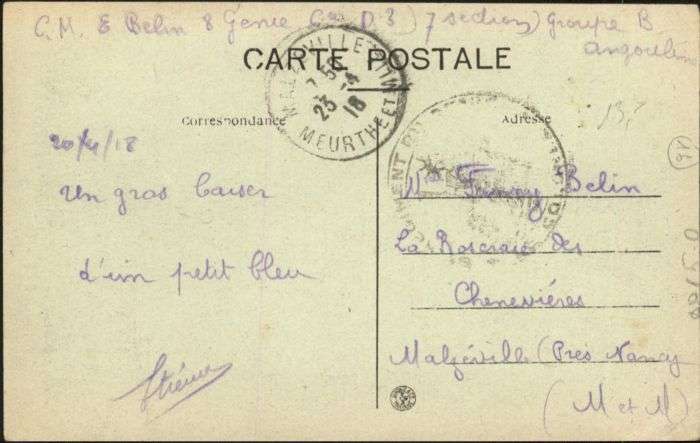 C.M. E Belin 8 Génie Cie D 3) 7 section) Groupe B
Angoulême
CARTE POSTALE
MALZÉVILLE
7 50
23 -4
18
MEURTHE ET M
Correspondance
Adresse
20/4/18
Un gros baiser
d'un petit bleu
Étienne
Mme Fanny Belin
La Roseraie des
Chenevières
Malzéville (Près Nancy
(M et M)